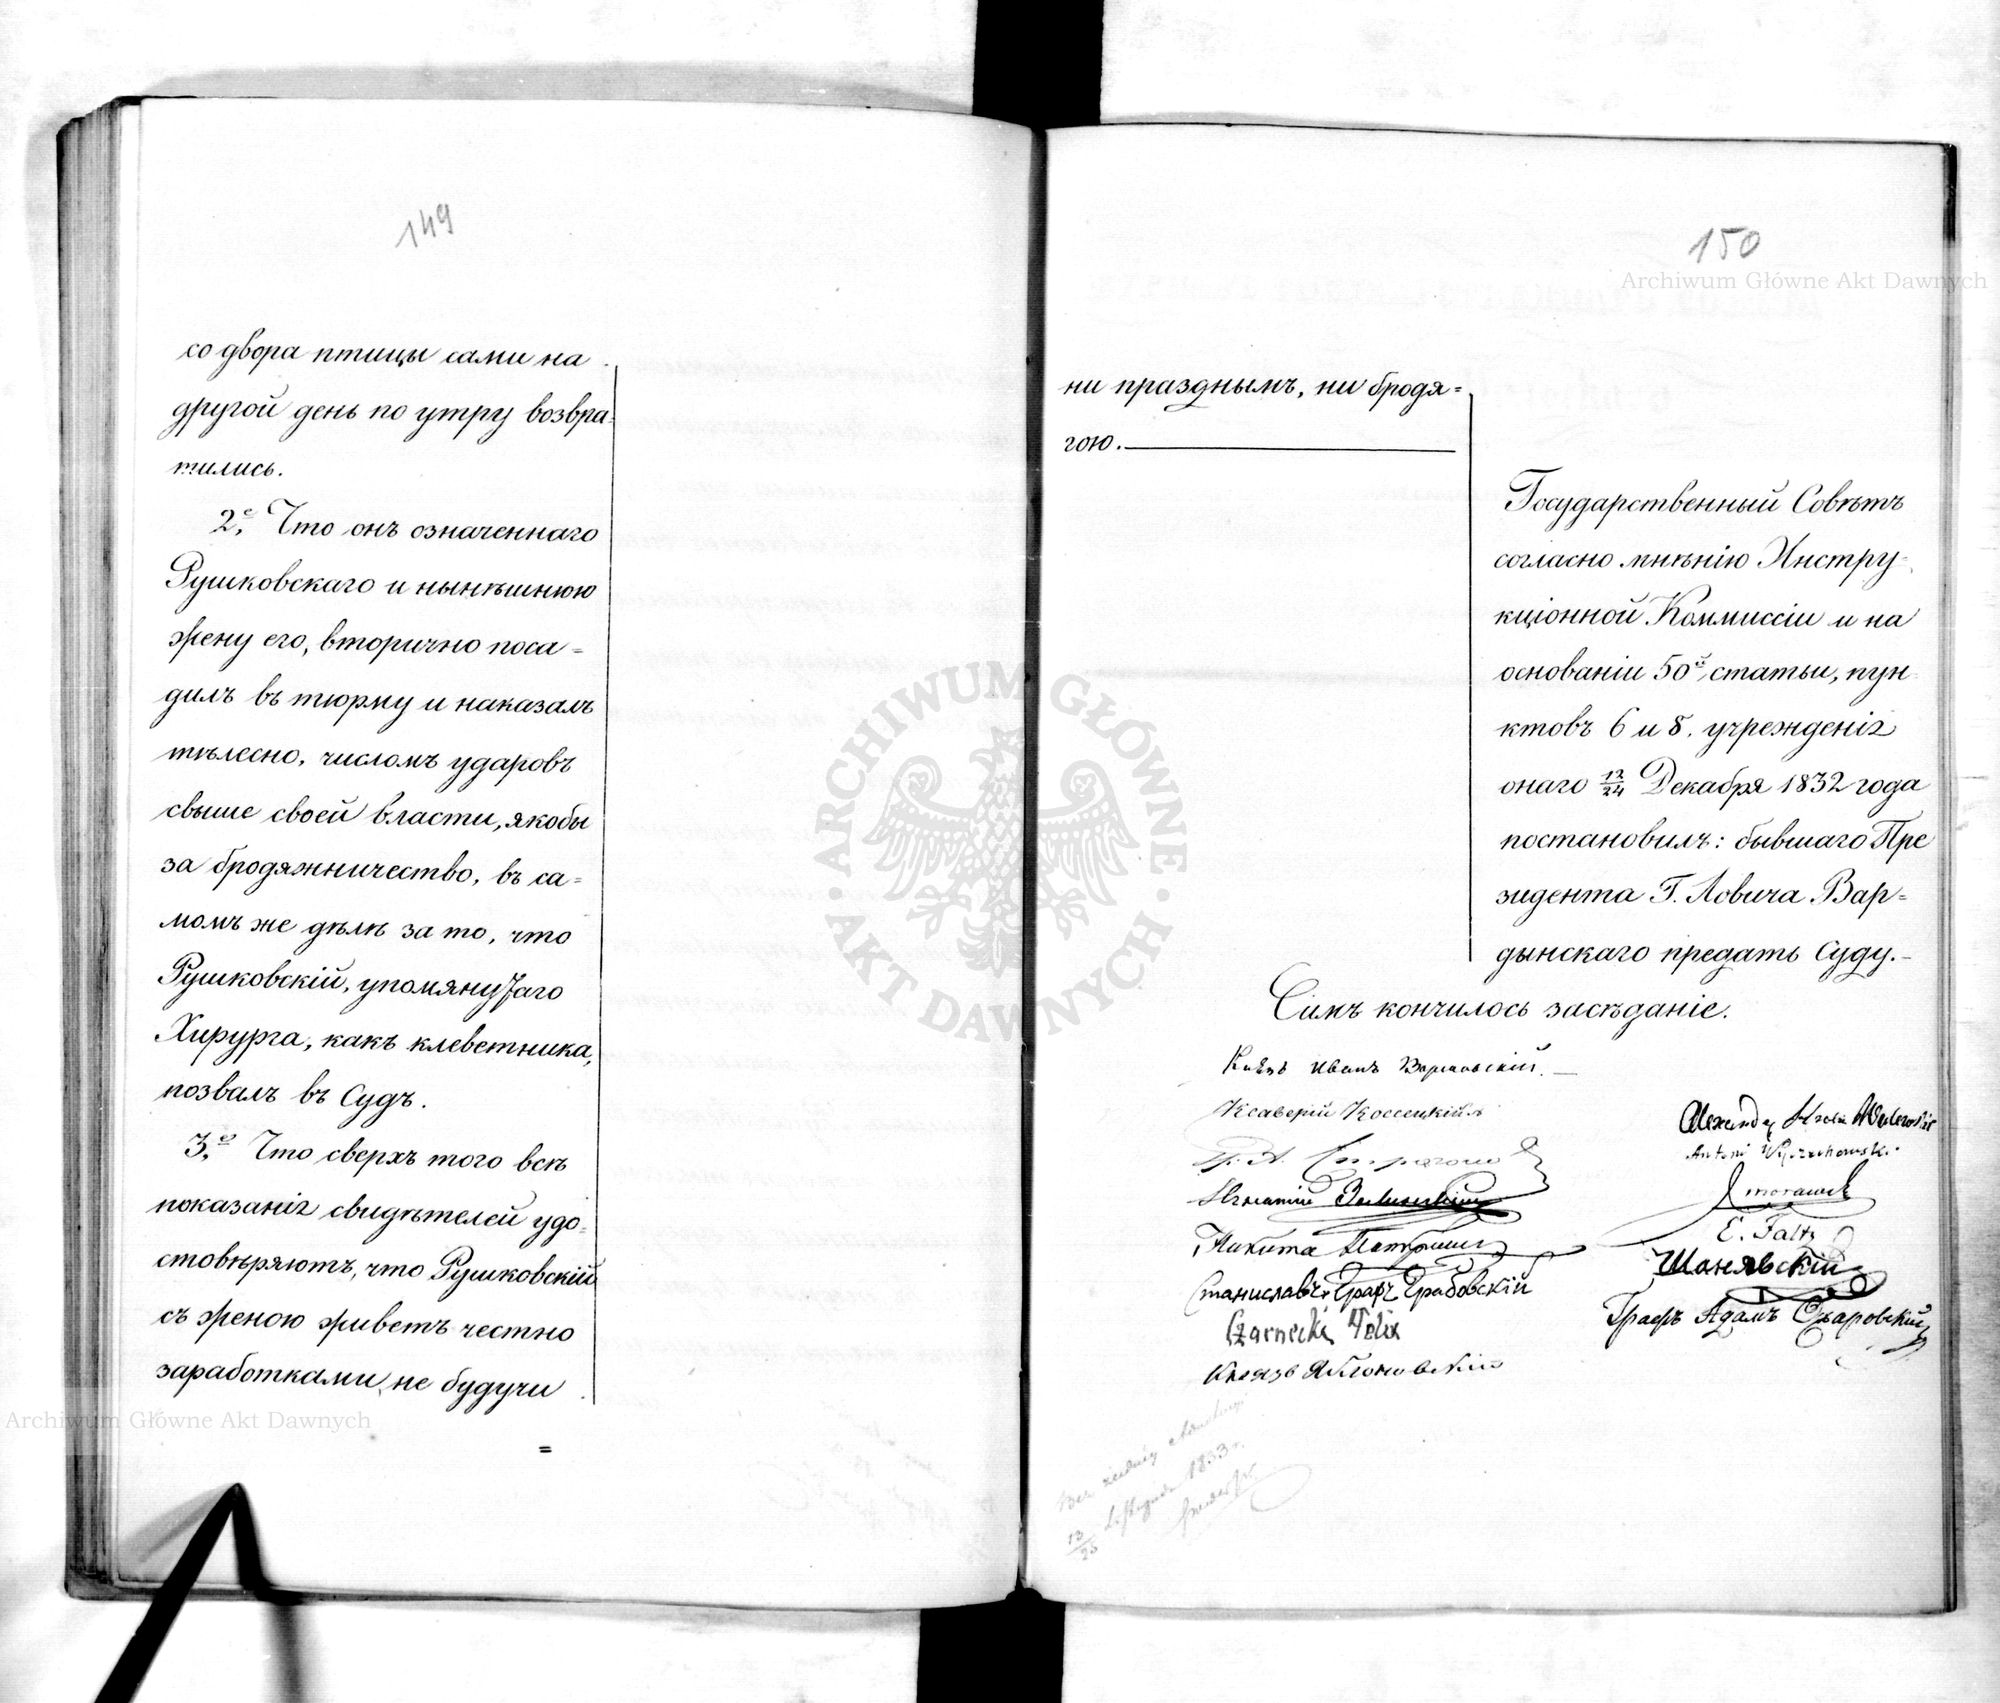 149
со двора птицы сами на
другой день по утру возвра=
тились.
2е, Что онъ означеннаго
Рушковскаго и нынѣшнюю
жену его, вторично поса=
дилъ въ тюрму и наказалъ
тѣлесно, числомъ ударовъ
свыше своей власти, якобы
за бродяжничество, въ са=
момъ же дѣлѣ за то, что
Рушковскій, упомянутаго
Хирурга, какъ клеветника,
позвалъ въ Судъ.
3е, Что сверхъ того всѣ
показанія свидѣтелей удо=
стовѣряютъ, что Рушковскій
съ женою живетъ честно
заработками, не будучи
=
150
ни празднымъ, ни бродя=
гою.
Государственный Совѣтъ
согласно мнѣнію Инстру=
кціонной Коммиссіи и на
основаніи 50й статьи, пун
ктовъ 6 и 8. учрежденія
онаго 12/24 Декабря 1832 года
постановилъ: бывшаго Пре
зидента Г. Ловича Вар=
дынскаго предать Суду.-
Симъ кончилось засѣданіе.
Князь Иванъ Варшавскій.
Ксаверій Коссецкій
Гр. А. Строгоно
Игнатій Зелинскій
Никита
Станиславъ Графъ Грабовскій
Czarnecki Felix
Князь Яблоновскій
Alexander
Antoni Wyczechowski.
Morawsk
E. Faltz
Шанявскій
Графъ Адамъ Ожаровскій
12/25 1833 r.
ARCHIWUM GŁÓWNE AKT DAWNYCH
Archiwum Główne Akt Dawnych
Archiwum Główne Akt Dawnych